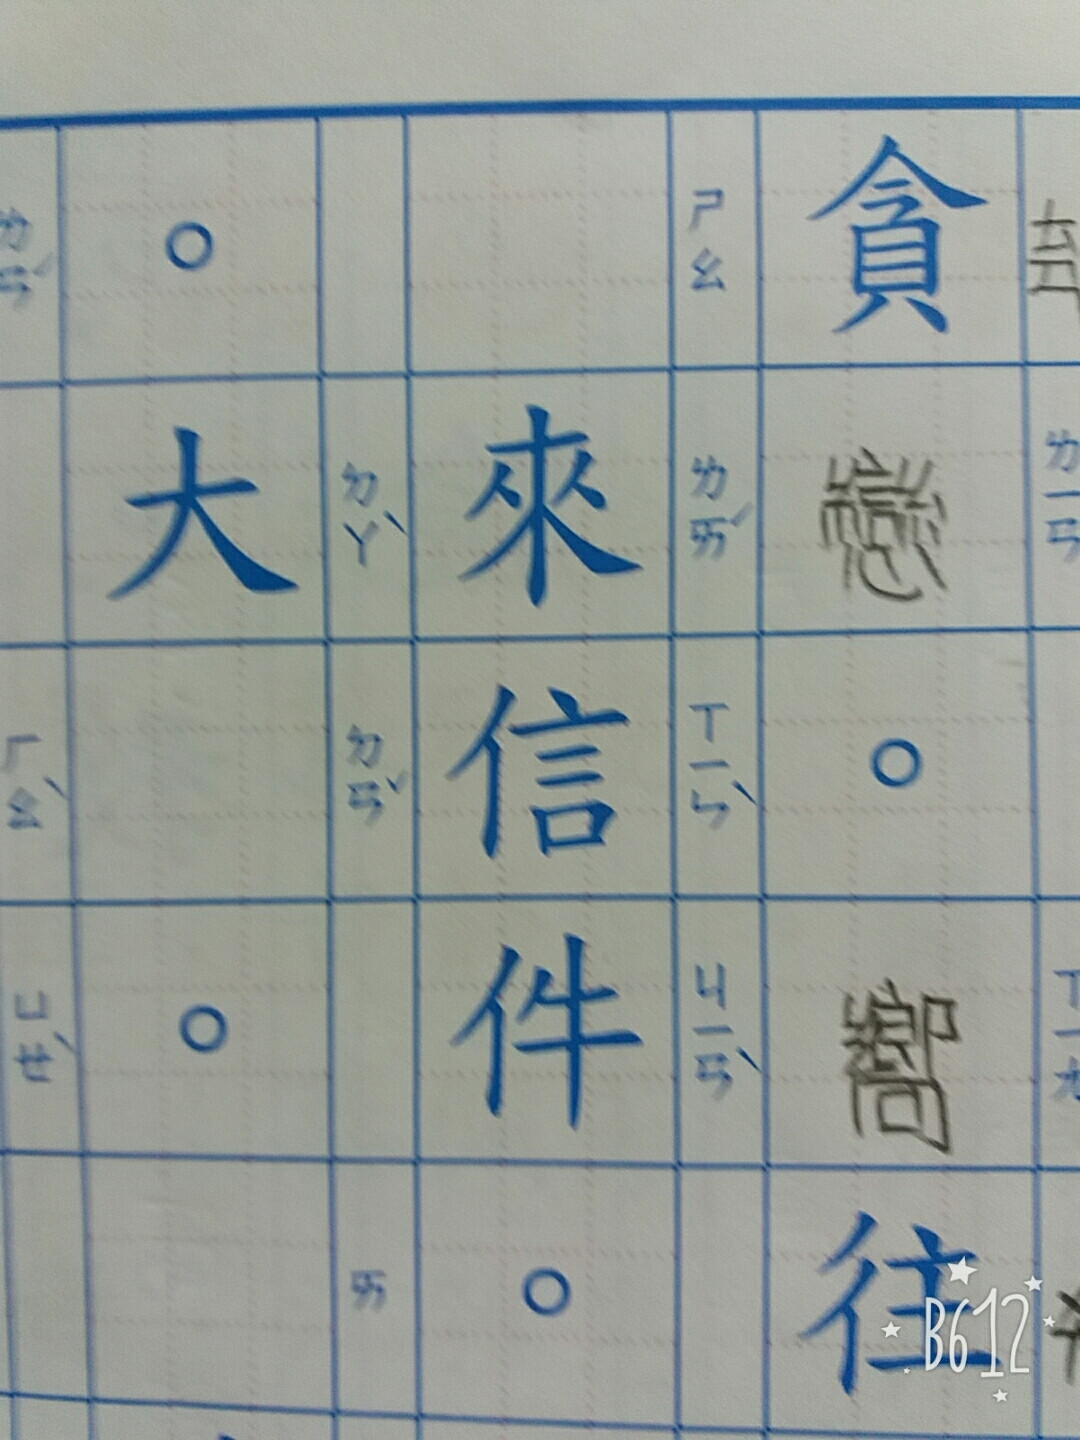 貪戀○嚮往
ㄕㄠ ㄌㄞˊ ㄒㄧㄣˋ ㄐㄧㄢˋ
來信件○
ㄉㄚˋ ㄉㄢˇ ㄞ
○大○
ㄌㄢˊ ㄏㄠˋ ㄩㄝˋ
B612